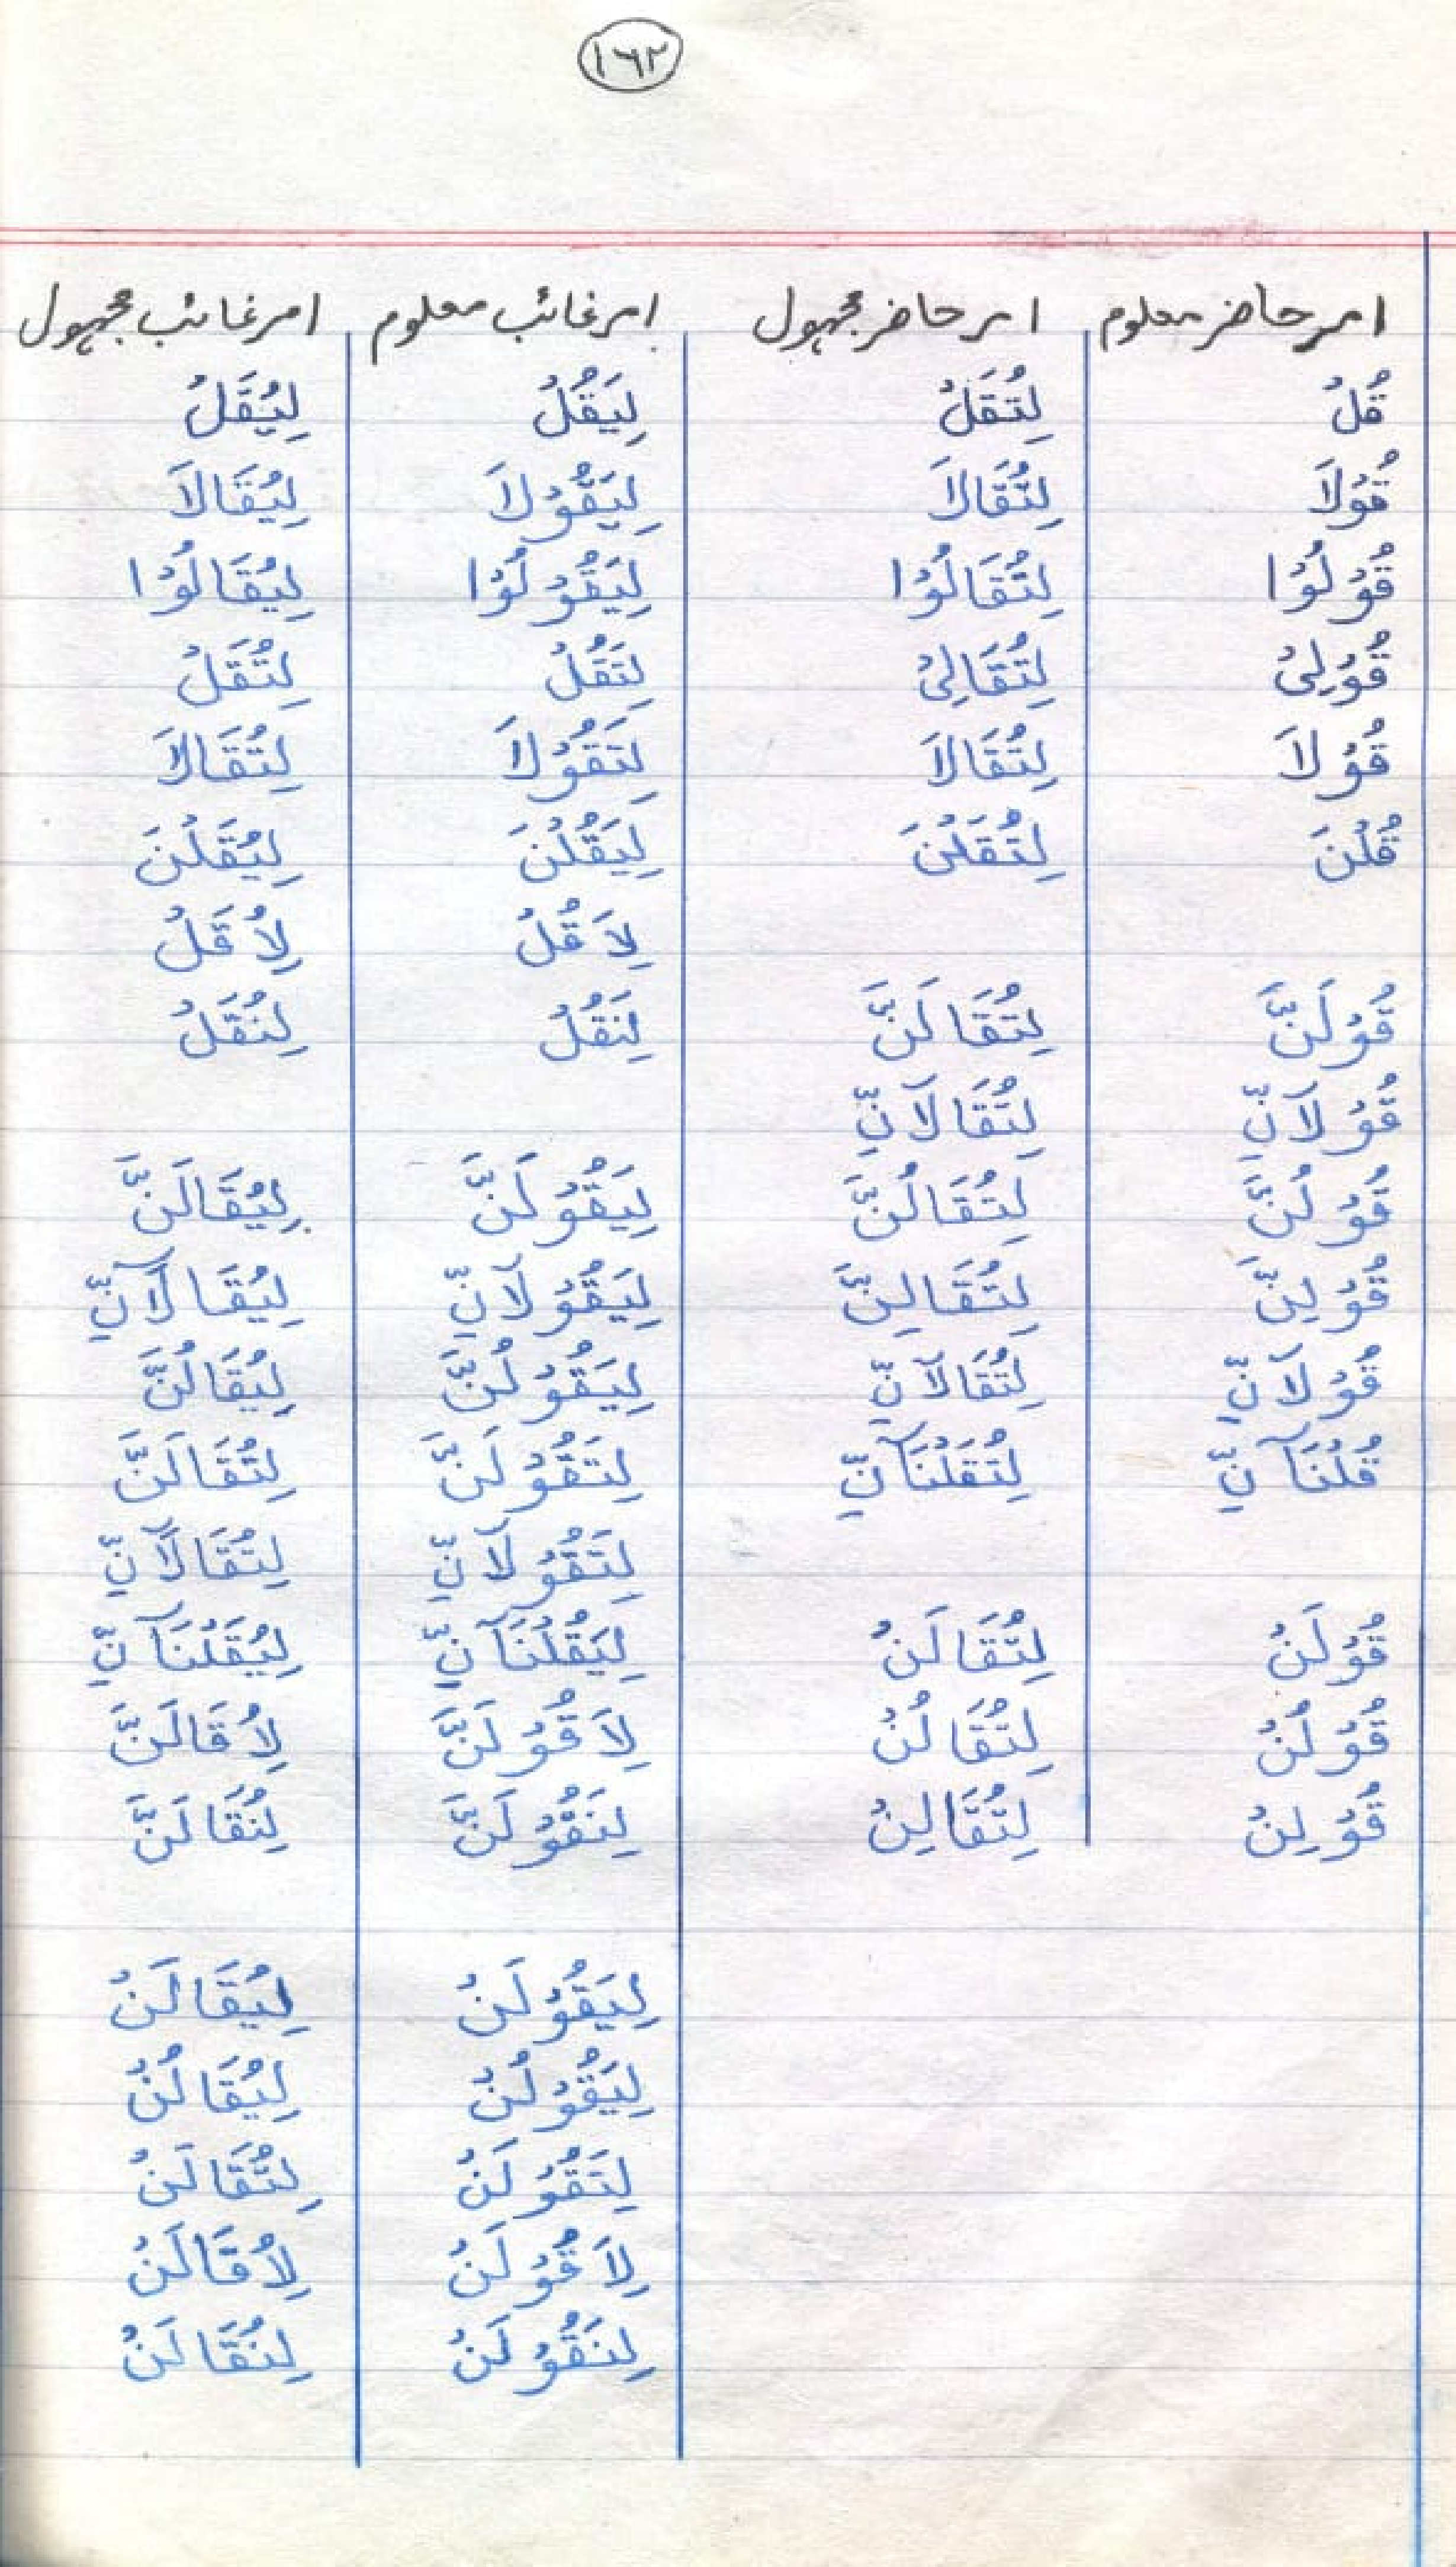 ١٦٢
امر حاضر معلوم امر حاضر مجہول امر غائب معلوم امر غائب مجہول
قُلْ لِتُقَلْ لِيَقُلْ لِيُقَلْ
قُوْلَا لِتُقَالَا لِيَقُوْلَا لِيُقَالَا
قُوْلُوْا لِتُقَالُوْا لِيَقُوْلُوْا لِيُقَالُوْا
قُوْلِىْ لِتُقَالِىْ لِتَقُلْ لِتُقَلْ
قُوْلَا لِتُقَالَا لِتَقُوْلَا لِتُقَالَا
قُلْنَ لِتُقَلْنَ لِيَقُلْنَ لِيُقَلْنَ
لِاَقُلْ لِاُقَلْ
قُوْلَنَّ لِتُقَالَنَّ لِنَقُلْ لِنُقَلْ
قُوْلَآنِّ لِتُقَالَآنِّ
قُوْلُنَّ لِتُقَالُنَّ لِيَقُوْلَنَّ لِيُقَالَنَّ
قُوْلِنَّ لِتُقَالِنَّ لِيَقُوْلَآنِّ لِيُقَالَآنِّ
قُوْلَآنِّ لِتُقَالَآنِّ لِيَقُوْلُنَّ لِيُقَالُنَّ
قُلْنَآنِّ لِتُقَلْنَآنِّ لِتَقُوْلَنَّ لِتُقَالَنَّ
لِتَقُوْلَآنِّ لِتُقَالَآنِّ
قُوْلَنْ لِتُقَالَنْ لِيَقُلْنَآنِّ لِيُقَلْنَآنِّ
قُوْلُنْ لِتُقَالُنْ لِاَقُوْلَنَّ لِاُقَالَنَّ
قُوْلِنْ لِتُقَالِنْ لِنَقُوْلَنَّ لِنُقَالَنَّ
لِيَقُوْلَنْ لِيُقَالَنْ
لِيَقُوْلُنْ لِيُقَالُنْ
لِتَقُوْلَنْ لِتُقَالَنْ
لِاَقُوْلَنْ لِاُقَالَنْ
لِنَقُوْلَنْ لِنُقَالَنْ